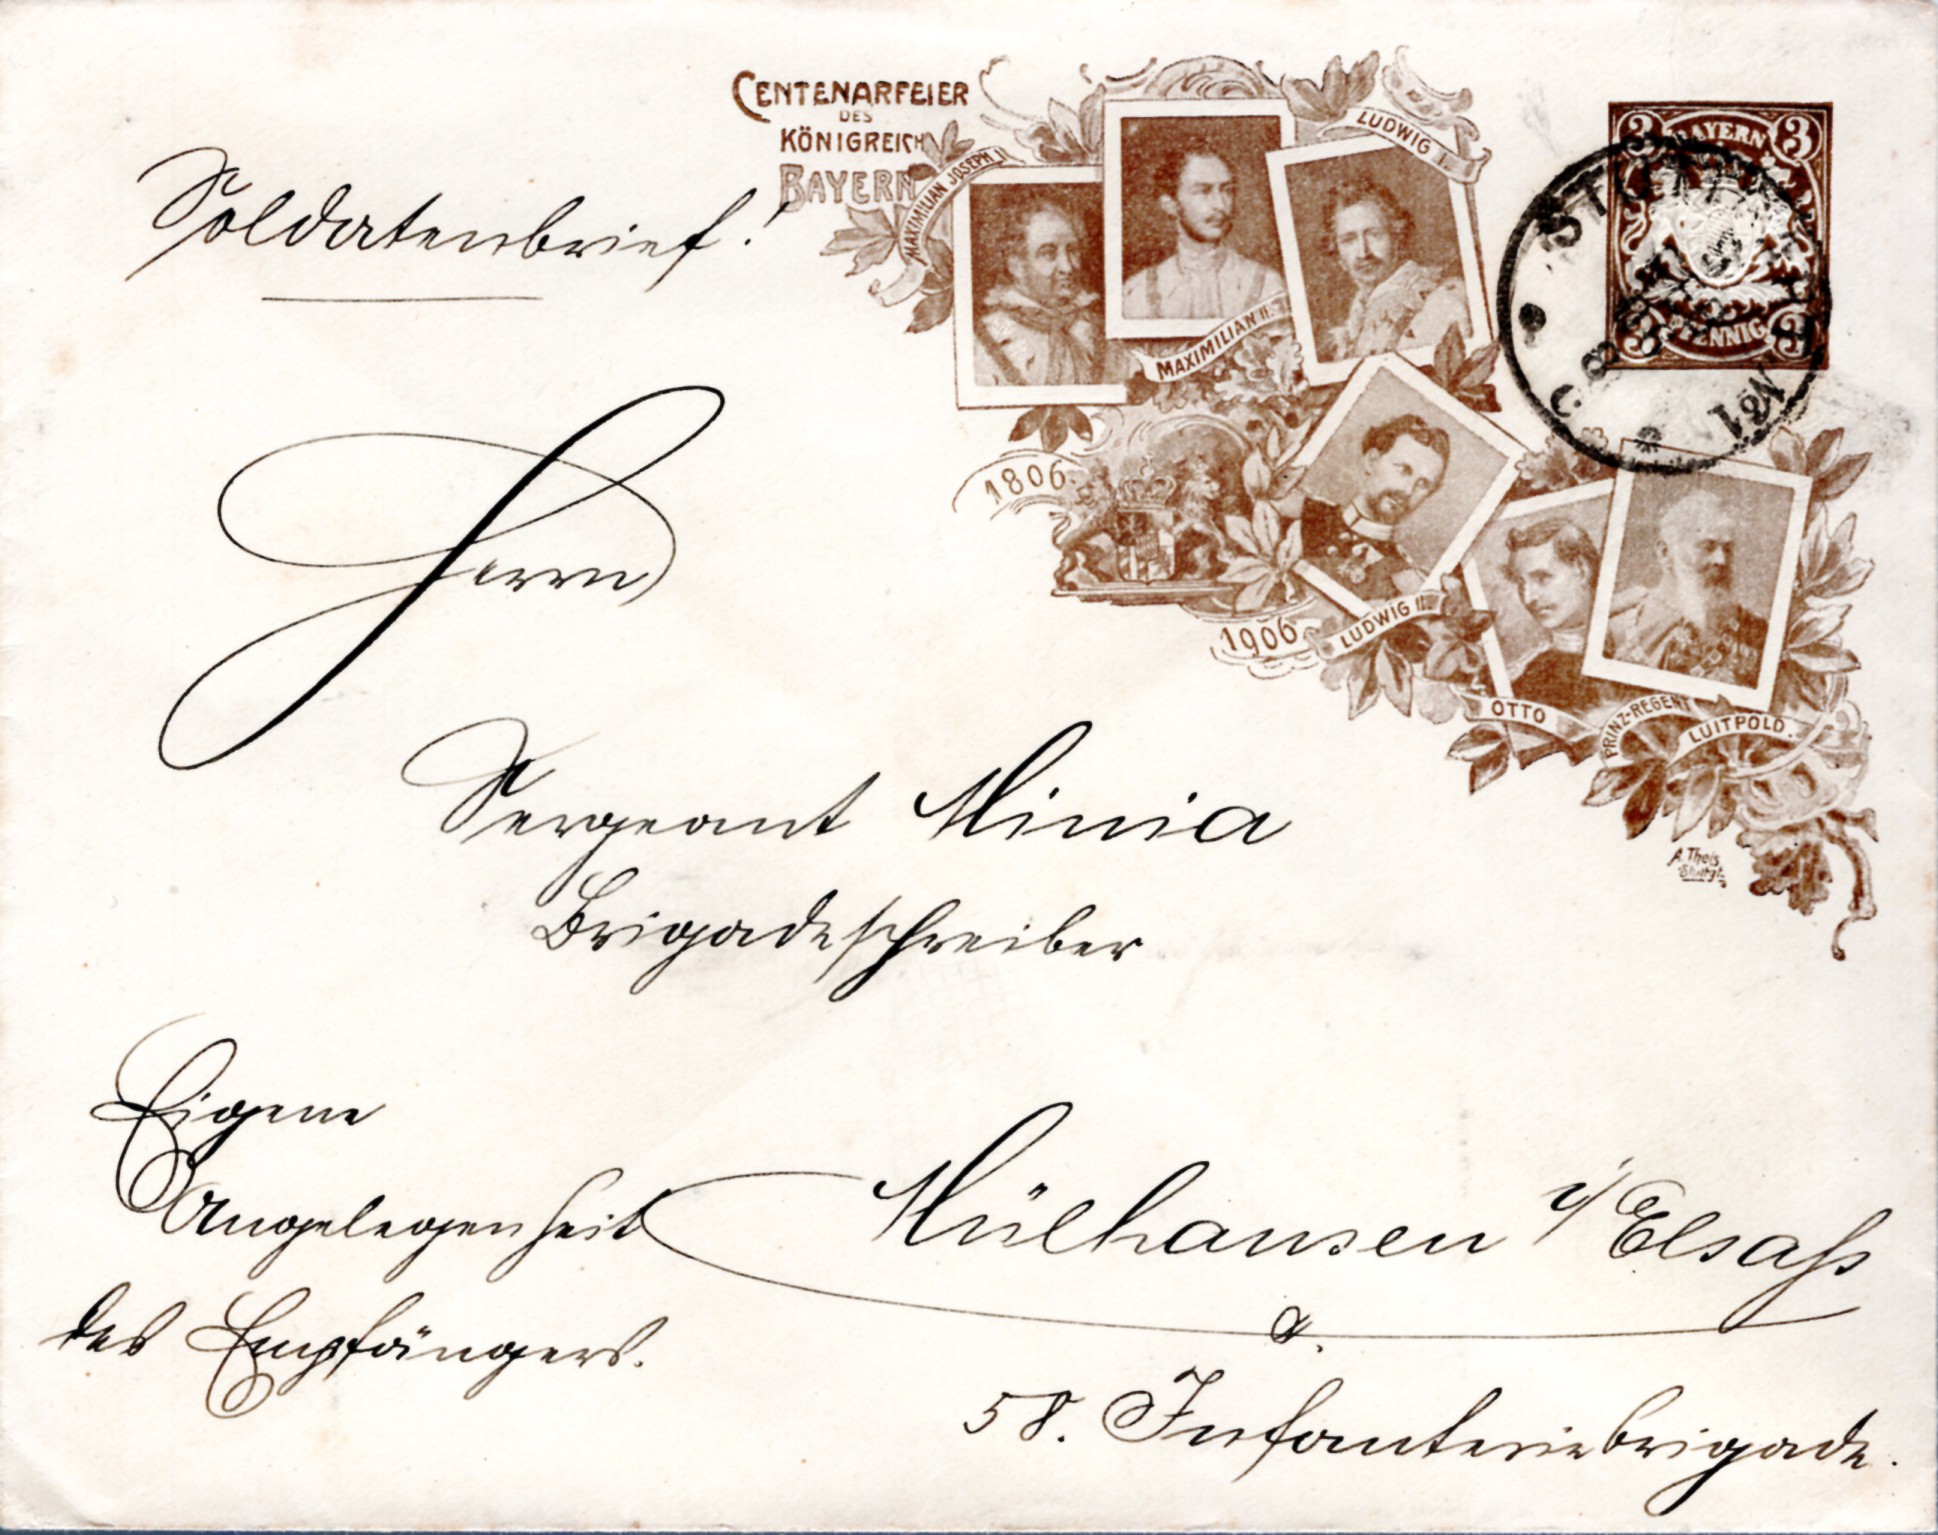 CENTENARFEIER
DES
KÖNIGREICH
BAYERN
MAXIMILIAN JOSEPH II
MAXIMILIAN II.
LUDWIG I.
3 BAYERN 3
3 PFENNIG 3
STUTTGART
No 1
Soldatenbrief!
1806
1906
LUDWIG II.
OTTO
PRINZ-REGENT
LUITPOLD.
A. Theis
Stuttgt.
Herrn
Sergeant Minia
Brigadeschreiber
Eigene
Angelegenheit
des Empfängers.
Mülhausen i/Elsaß
58. Infanteriebrigade.